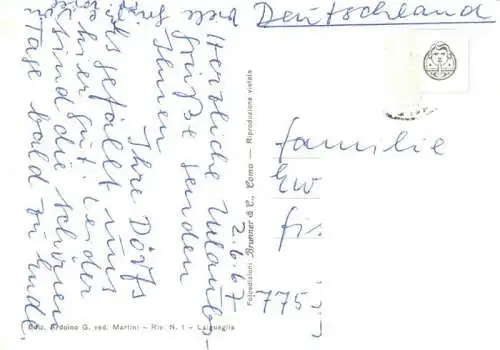 Deutschland
2.6.67
Herzliche Urlaubs-
grüße senden
Ihnen
Ihre Dörfs
Es gefällt uns
hier gut, leider
sind die schönen
Tage bald zu Ende.
viele
Familie
Ew
fis
775
Fotoedizioni Brunner & C., Como — Riproduzione vietata
Ediz. Ardoino G. ved. Martini - Riv. N. 1 - Laigueglia